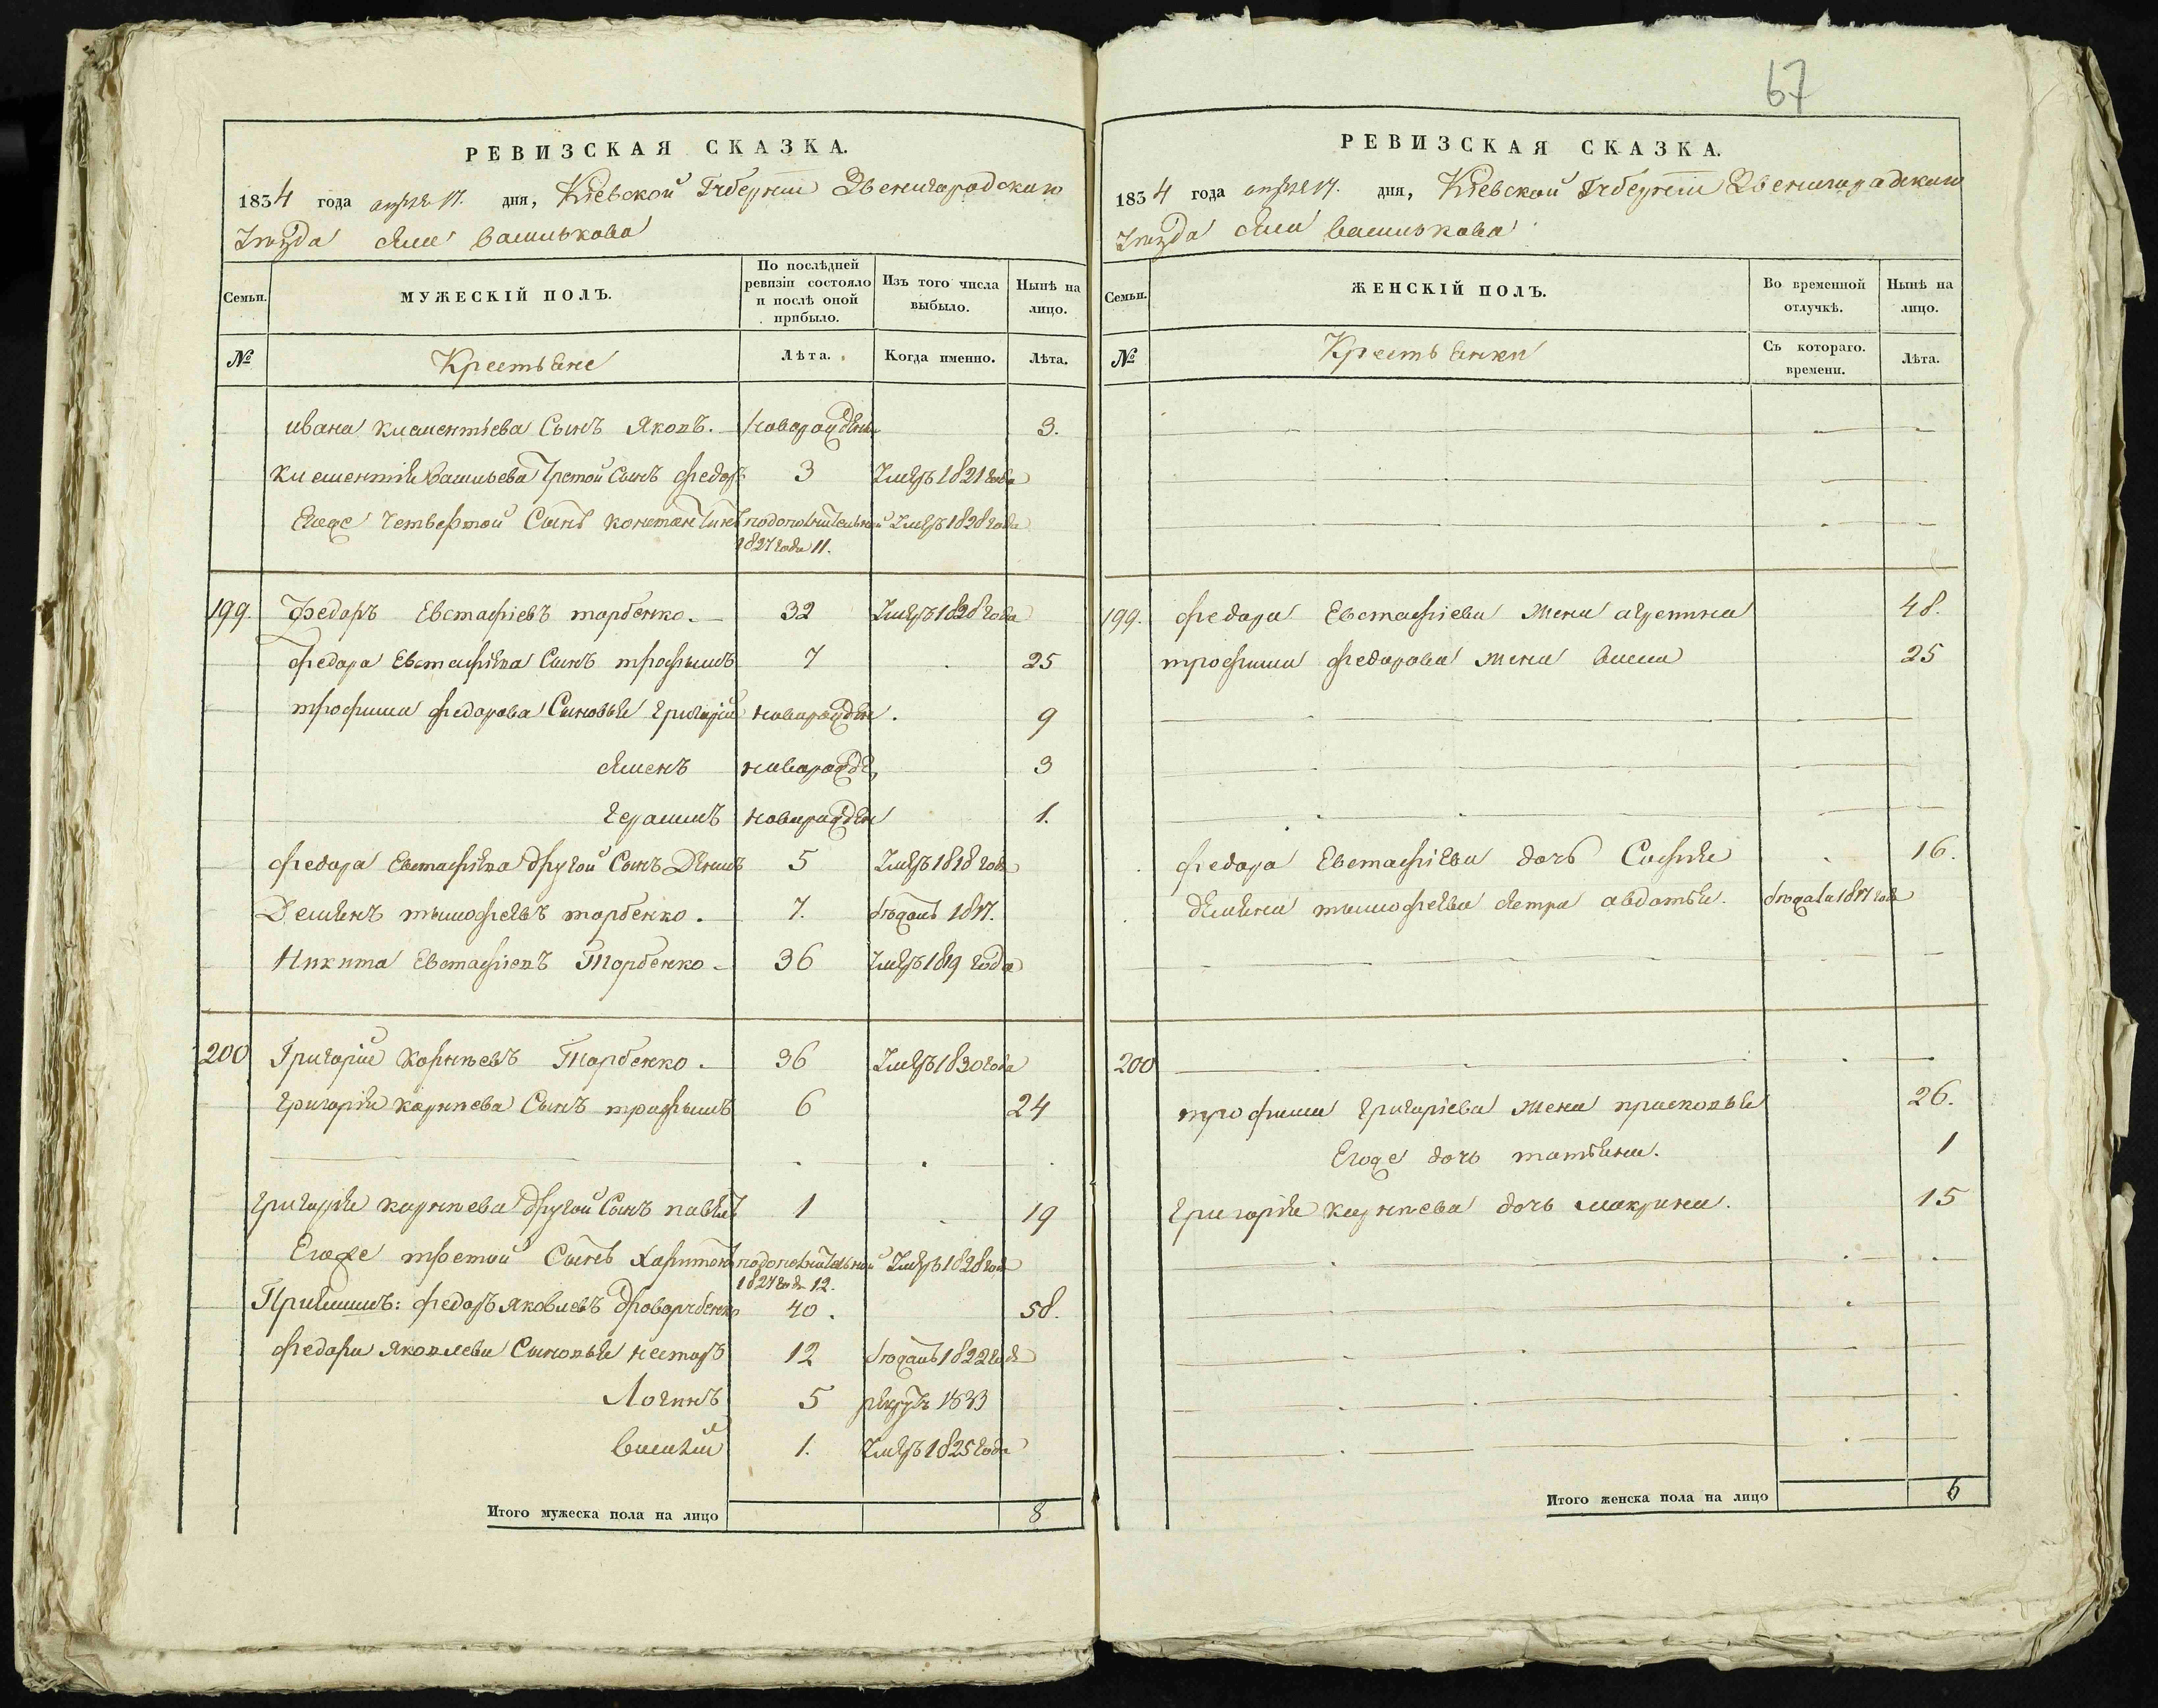 67
РЕВИЗСКАЯ СКАЗКА.
1834 года апреля 17. дня, Кіевской Губерніи Звенигородского
Уезда села Василькова
Семьи.
МУЖЕСКІЙ ПОЛЪ.
По послѣдней ревизіи состояло и послѣ оной прибыло.
Изъ того числа выбыло.
Нынѣ на лицо.
№ Крестьяне Лѣта. Когда именно. Лѣта.
ивана климентьева Сынъ Яковъ. новорожденъ 3.
климентія васильева третой Сынъ федоръ 3 умеръ 1821 года
Егоже Четвертой Сынъ константинъ подополнительной умеръ 1828 года
1827 года 11.
199. Федоръ Евстафіевъ торбенко. 32 умеръ 1828 года
федора Евстафіева Сынъ трофымъ 7 25
трофима федорова Сыновья григорій новорожден. 9
семенъ новорожде, 3
герасимъ новорожден 1.
федора Евстафіева другой Сынъ Денисъ 5 умеръ 1818 года
Демянъ тымофеевъ торбенко. 7. бѣжалъ 1817.
Никита Евстафіевъ Торбенко 36 умеръ 1819 года
200 Григорій корнѣевъ Торбенко. 36 умеръ 1830 года
григорія корнѣева Сынъ трофымъ 6 24
григорія корнѣева другой Сынъ павелъ 1 19
Егоже третой Сынъ Харитонъ подополнительной умеръ 1828 года
1827 года 12.
Приймышъ: федоръ яковлевъ 40. 58.
федора яковлева Сыновья несторъ 12 бѣжалъ 1822 года
Логинъ 5 рекрутъ 1833
василій 1. умеръ 1825 года
Итого мужеска пола на лицо 8
РЕВИЗСКАЯ СКАЗКА.
1834 года апреля 17. дня, Кіевской Губерніи Звенигородского
Уезда села Василькова
Семьи.
ЖЕНСКІЙ ПОЛЪ.
Во временной отлучкѣ.
Нынѣ на лицо.
№ Крестьянки Съ котораго. времени. Лѣта.
199. федора Евстафіева жена агрепина 48.
трофима федорова жена 25
федора Евстафіева дочь Софія 16.
демяна тымофеева сестра авдотья. бѣжала 1817 года
200
трофима григоріева жена прасковья 26.
Егоже дочь татьяна. 1
григорія корнѣева дочь макрина. 15
Итого женска пола на лицо 6